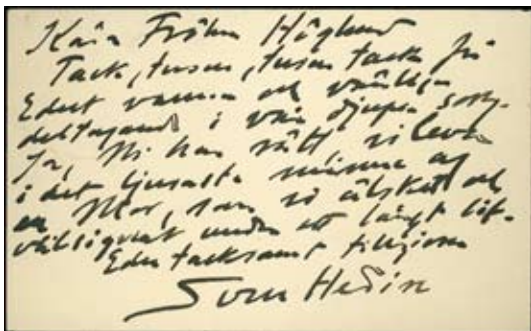 Kära Fröken Höglund
Tack, tusen, tusen tack för
Edert varma och vänliga
deltagande i vår djupa sorg.
Ja, Ni har rätt, vi leva
i det ljusaste minne af
en Mor, som vi älskat och
välsignat under ett långt lif.
Eder tacksamt tillgifvne
Sven Hedin